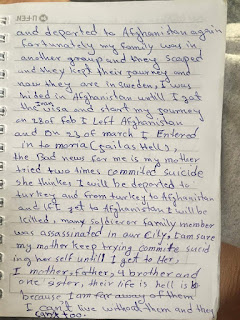 U-FEEL
and departed to Afghanistan again
fortunately my family was in
another group and they scaped
and they kept their journey and
now they are in Sweden, I was
hided in Afghanistan untill I got
the Iran visa and start my journey
on 28 of feb I left Afghanistan
and on 23 of march I Entered
in to moria (Jail as Hell),
the Bad news for me is my mother
tried two times commited suicide
she thinkes I will be deported to
turkey and from turkey to Afghanistan
and if I get to Afghanistan I will be
killed, many soldier or family member
was assassinated in our City, I am sure
my mother keep trying commite suicid
ing her self untill I get to Her,
I mother, father, 4 brother and
one sister, their life is hell is
because I am far away of them
I can't live without them and they
can't too.